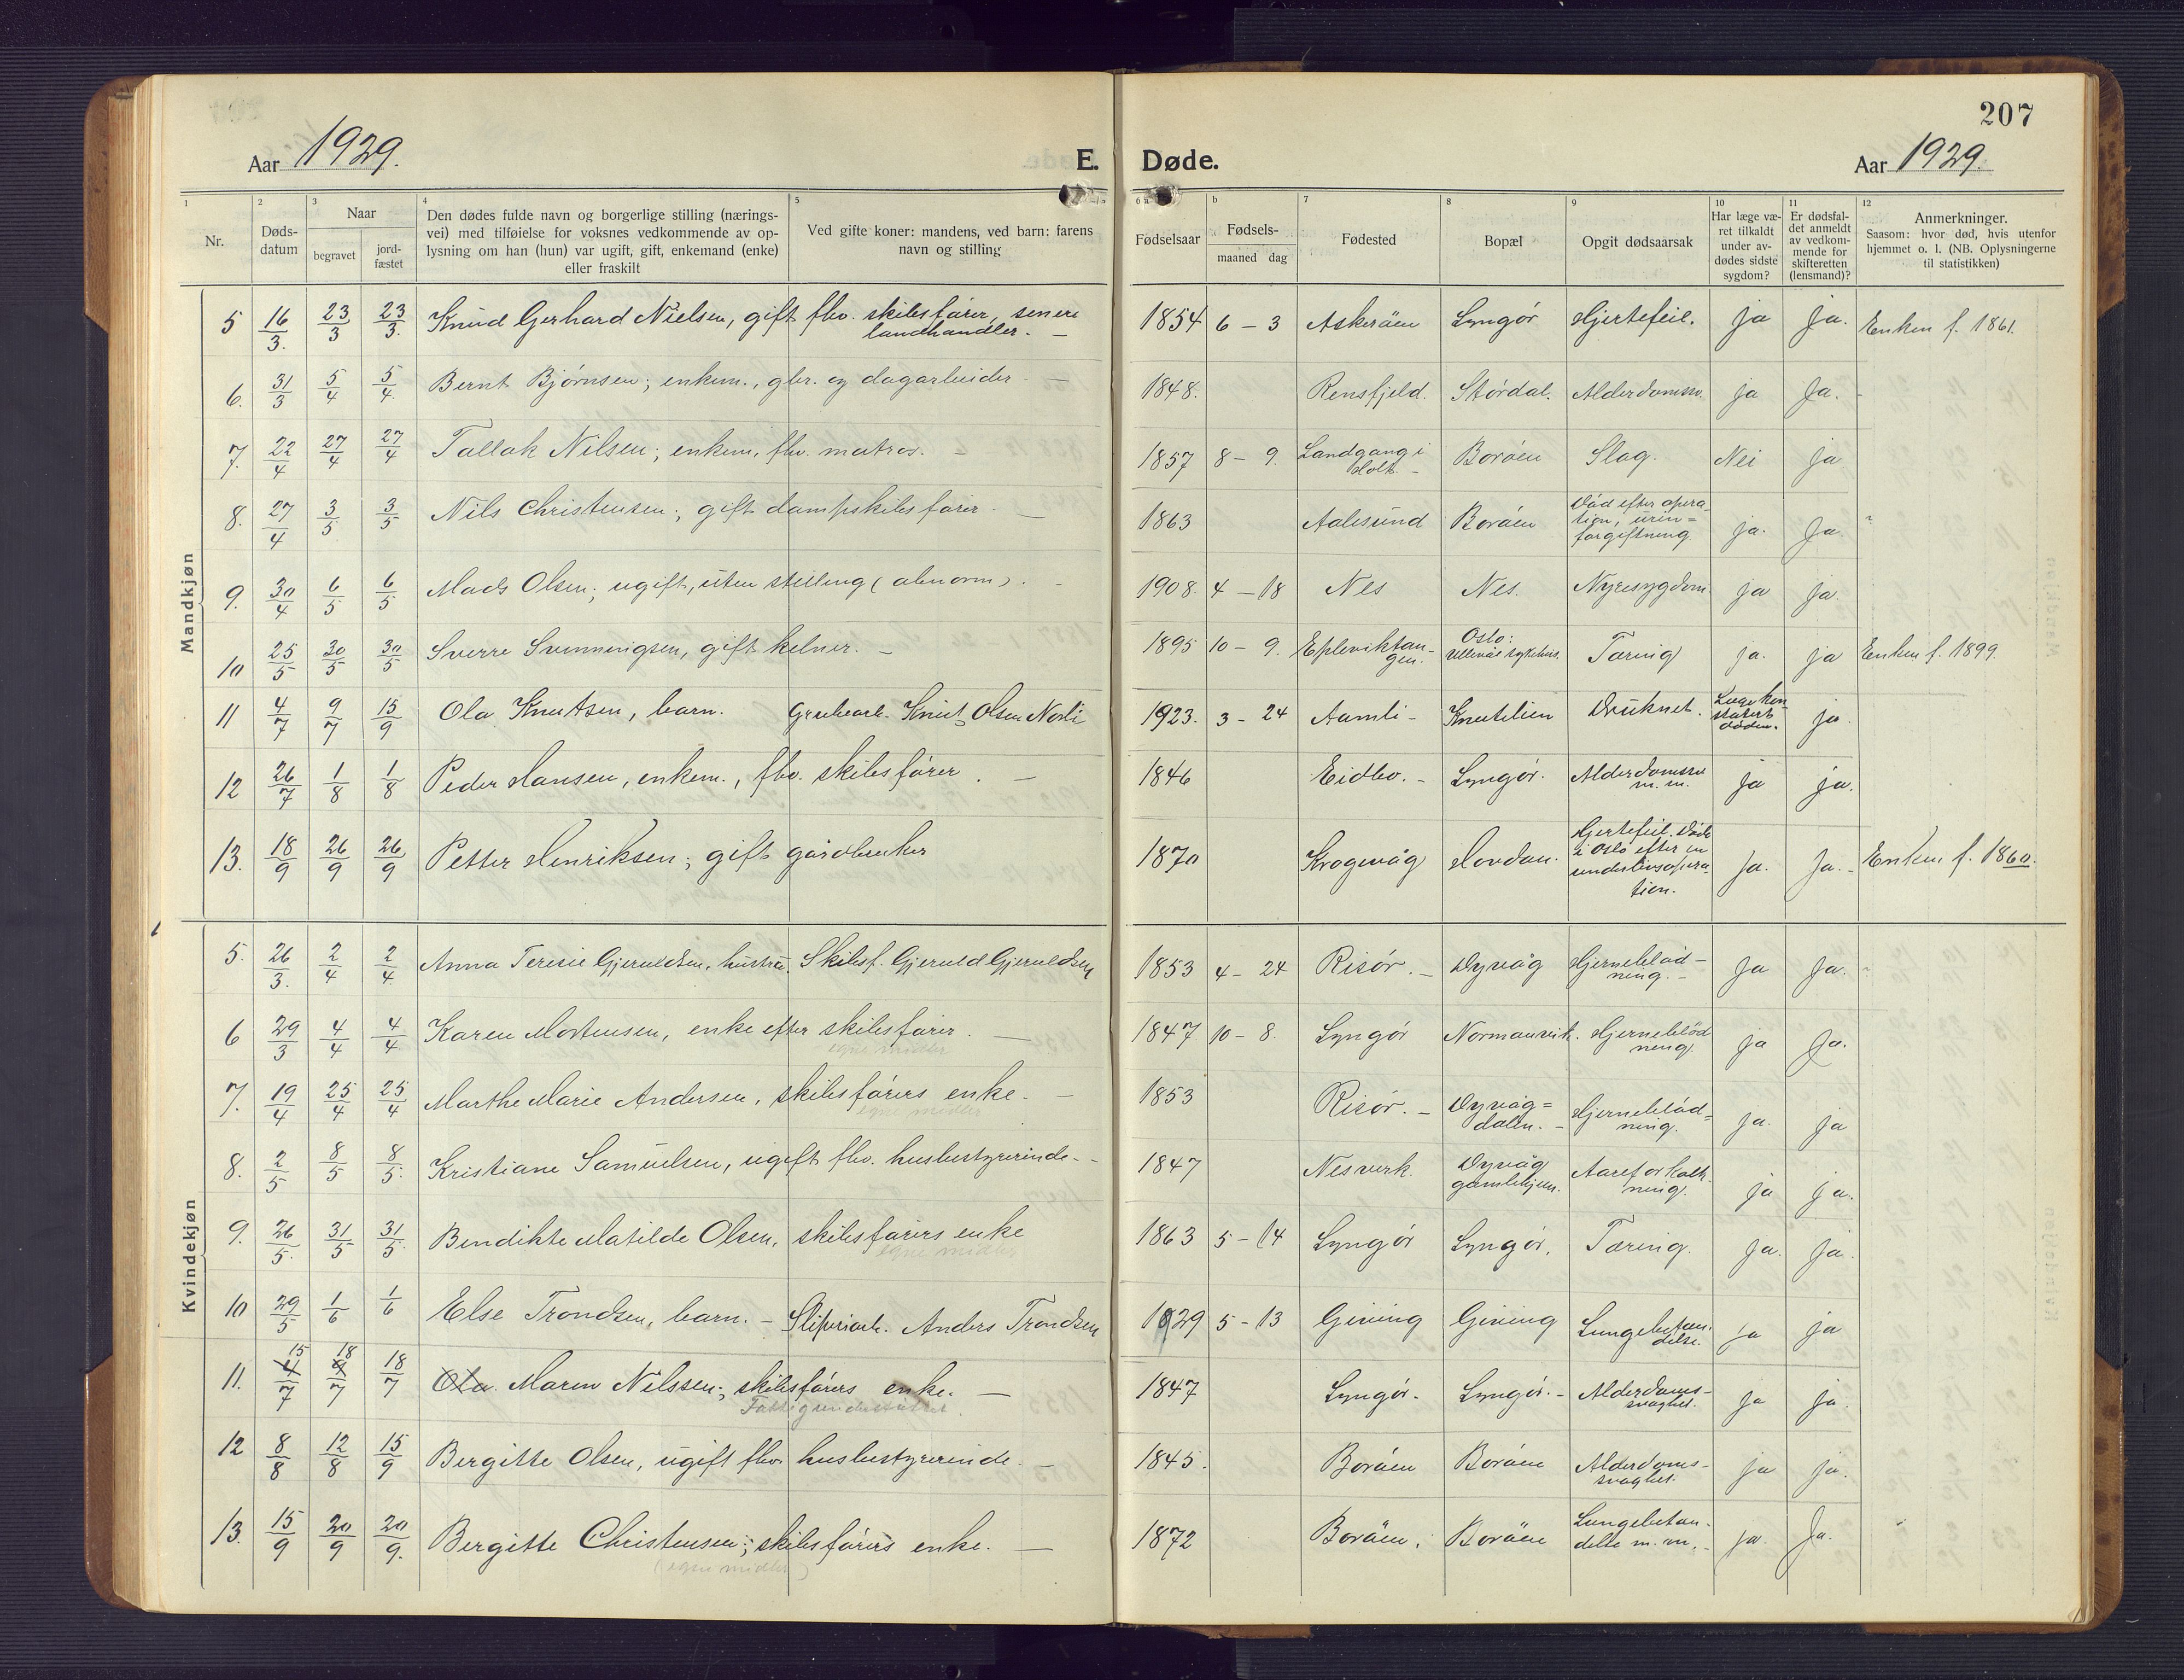 207
Aar 1929.
E. Døde.
Aar 1929.
1 Nr.
2 Døds-datum
3 Naar begravet jord-fæstet
4 Den dødes fulde navn og borgerlige stilling (nærings-
vei) med tilføielse for voksnes vedkommende av op-
lysning om han (hun) var ugift, gift, enkemand (enke)
eller fraskilt
5 Ved gifte koner: mandens, ved barn: farens
navn og stilling
6 a Fødselsaar
b Fødsels- maaned dag
7 Fødested
8 Bopæl
9 Opgit dødsaarsak
10 Har læge væ-
ret tilkaldt
under av-
dødes sidste
sygdom?
11 Er dødsfal-
det anmeldt
av vedkom-
mende for
skifteretten
(lensmand)?
12 Anmerkninger.
Saasom: hvor død, hvis utenfor
hjemmet o. l. (NB. Oplysningerne
til statistikken)
Mandkjøn
5 16/3. 23/3 23/3. Knud Gerhard Nielsen, gift fhv. skibsfører, senere landhandler. — 1854 6 – 3 Askerøen Lyngør Hjertefeil. ja ja. Enken f. 1861.
6. 31/3 5/4 5/4. Bernt Bjørnsen; enkem., gbr. og dagarbeider. — 1848. Rensfjeld. Størdal. Alderdomssv. ja Ja.
7. 22/4 27/4 27/4 Tallak Nilsen; enkem, fhv. matros. – 1857 8 – 9. Landgang i Holt. – Borøen Slag. Nei ja
8. 27/4 3/5 3/5 Nils Christensen; gift dampskibsfører. — 1863 Aalesund Borøen Død efter opera-
tion, urin=
forgiftning ja. Ja.
9. 30/4 6/5 6/5 Mads Olsen; ugift, uten stilling (abnorm). – 1908. 4 – 18 Nes Nes. Nyresygdom. ja ja.
10 25/5 30/5 30/5 Sverre Svenningsen, gift kelner. – 1895 10 – 9. Epleviktan-
gen. Oslo: Ullevål sykehus. Tæring ja. ja Enken f. 1899.
11 4/7 9/7 15/9 Ola Knutsen, barn. Grubearb. Knut Olsen Norli 1923. 3 – 24 Aamli – Knutelien Druknet. Læge kon-
staterte
døden. ja.
12 26/7 1/8 1/8 Peder Hansen, enkem., fhv. skibsfører. — 1846 Eidbo. – Lyngør. Alderdomssv. m. m. ja ja.
13. 18/9 26/9 26/9 Petter Henriksen; gift gårdbruker 1870 Krogevåg Hovdan. Hjertefeil. Døde
i Oslo efter en
underlivsopera-
tion. Ja. Ja. – Enken f. 1860.
Kvindekjøn
5. 26/3. 2/4 2/4. Anna Teresie Gjeruldsen, hustru. Skibsf. Gjeruld Gjeruldsen 1853 4 – 24 Risør. – Dyvåg Hjerneblød-
ning. – Ja Ja.
6 29/3 4/4 4/4. Karen Mortensen, enke efter skibsfører. —
egne midler 1847 10 – 8. Lyngør Normannvik. Hjerneblød
ning. ja Ja.
7. 19/4 25/4 25/4 Marthe Marie Andersen, skibsførers enke. –
egne midler 1853 Risør. – Dyvåg=
dalen. – Hjerneblød=
ning. ja. ja
8. 2/5 8/5 8/5. Kristiane Samuelsen, ugift fhv. husbestyrerinde. – 1847 Nesverk. Dyvåg
gamlehjem. Aareforkalk-
ning. ja ja.
9. 26/5. 31/5 31/5. Bendikte Matilde Olsen, skibsførers enke
egne midler 1863 5 – 14 Lyngør Lyngør. Tæring. ja. ja.
10 29/5 1/6 1/6 Else Trondsen, barn. – Sliperiarb. Anders Trondsen 1929 5 – 13 Giving Giving Lungebetæn-
delse. ja ja
11. 15/7 18/7 18/7 Ola. Maren Nilssen; skibsførers enke. —
Fattigunderstøttet. 1847 Lyngør. Lyngør. – Alderdoms-
svaghet. ja ja.
12 8/8 12/8 15/9 Bergitte Olsen, ugift fhv. husbestyrerinde. – 1845. Borøen Borøen Alderdoms-
svaghet. ja ja.
13. 15/9 20/9 20/9. Bergitte Christensen; skibsførers enke. —
(egne midler) 1872 Borøen. Borøen Lungebetæn-
delse m. m. – ja. Ja.